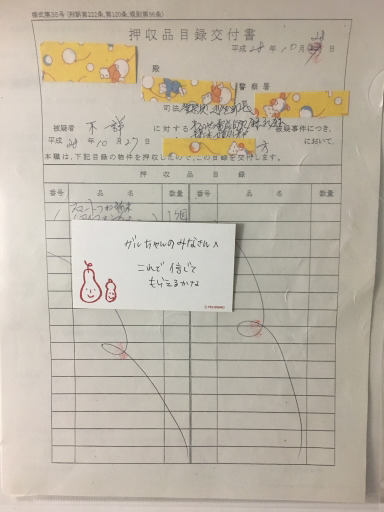 様式第35号(刑訴第222条,第120条,規則第96条)
押収品目録交付書
平成 28 年 10 月
殿
警察署
司法
被疑者 不詳 に対する 被疑事件につき、
平成 28 年 10 月 27 日 方 において、
本職は、下記目録の物件を押収したので、この目録を交付します。
押収品目録
番号 品名 数量 番号 品名 数量
1 スマートフォン端末
1個
ガルちゃんのみなさんへ
これで信じて
もらえるかな